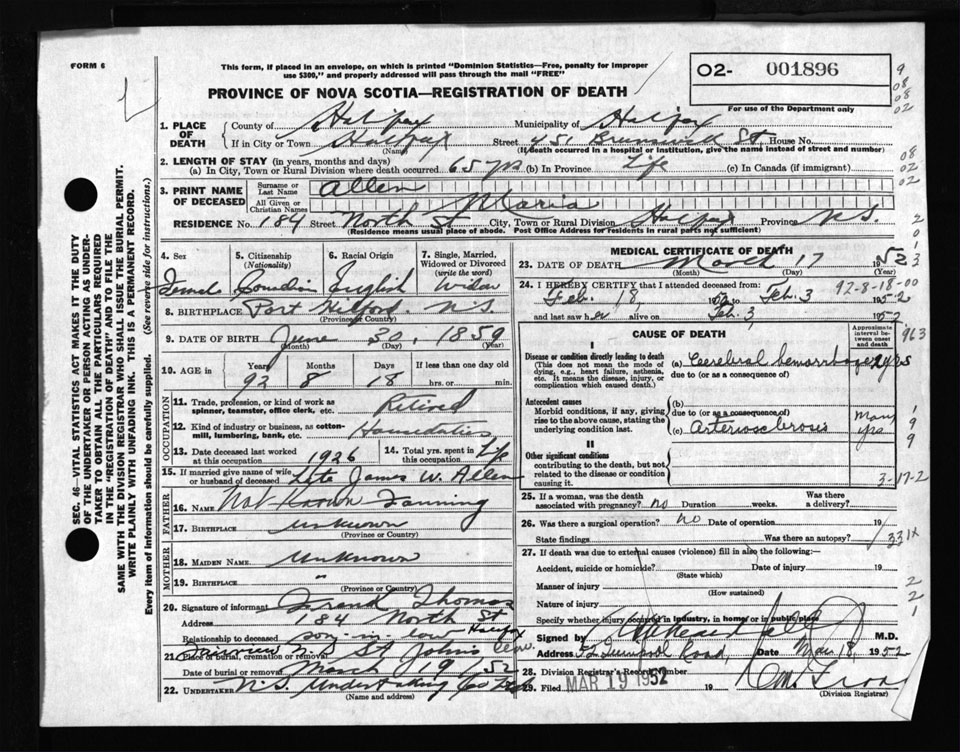 FORM 6
This form, if placed in an envelope, on which is printed "Dominion Statistics—Free, penalty for improper
use $300," and properly addressed will pass through the mail "FREE"
PROVINCE OF NOVA SCOTIA—REGISTRATION OF DEATH
02- 001896
For use of the Department only
9
08
08
02
1. PLACE OF DEATH
County of Halifax Municipality of Halifax
If in City or Town Halifax Street St. House No.
(Name) (If death occurred in a hospital or institution, give the name instead of street and number)
2. LENGTH OF STAY (in years, months and days)
(a) In City, Town or Rural Division where death occurred 65 yrs (b) In Province Life (c) In Canada (if immigrant)
08
02
02
3. PRINT NAME OF DECEASED
Surname or Last Name Allen
All Given or Christian Names Maria
RESIDENCE No. 184 Street North St City, Town or Rural Division Halifax Province N.S.
(Residence means usual place of abode. Post Office Address for residents in rural parts not sufficient)
2
0
1
3
4. Sex
Female
5. Citizenship (Nationality)
Canadian
6. Racial Origin
English
7. Single, Married, Widowed or Divorced (write the word)
Widow
8. BIRTHPLACE Port Hilford, N.S.
(Province or Country)
9. DATE OF BIRTH June 30, 1859
(Month) (Day) (Year)
10. AGE in Years Months Days If less than one day old
92 8 18 hrs. or min.
OCCUPATION
11. Trade, profession, or kind of work as spinner, teamster, office clerk, etc. Retired
12. Kind of industry or business, as cotton-mill, lumbering, bank, etc. Houseduties
13. Date deceased last worked at this occupation 1926
14. Total yrs. spent in this occupation Life
15. If married give name of wife or husband of deceased Late James W. Allen
FATHER
16. NAME Not Known Fanning
17. BIRTHPLACE unknown
(Province or Country)
MOTHER
18. MAIDEN NAME Unknown
19. BIRTHPLACE "
(Province or Country)
20. Signature of informant Frank Thomas
Address 184 North St Halifax
Relationship to deceased son-in-law
21. Place of burial, cremation or removal Fairview N.S. St. Johns Cem.
Date of burial or removal March 19 52
22. UNDERTAKER N.S. Undertaking Co Ltd
(Name and address)
MEDICAL CERTIFICATE OF DEATH
23. DATE OF DEATH March 17 1952
(Month) (Day) (Year)
24. I HEREBY CERTIFY that I attended deceased from:
92-8-18-00
Feb. 18 to Feb. 3 1952
and last saw her alive on Feb. 3, 1952
CAUSE OF DEATH
Approximate interval between onset and death
963
I
Disease or condition directly leading to death
(This does not mean the mode of dying, e.g., heart failure, asthenia, etc. It means the disease, injury, or complication which caused death.)
(a) Cerebral hemorrhage 2 yrs
due to (or as a consequence of)
Antecedent causes
Morbid conditions, if any, giving rise to the above cause, stating the underlying condition last.
(b)
due to (or as a consequence of)
(c) Arteriosclerosis Many yrs
1
9
9
II
Other significant conditions
contributing to the death, but not related to the disease or condition causing it.
3-17-2
25. If a woman, was the death associated with pregnancy? no Duration weeks. Was there a delivery?
26. Was there a surgical operation? no Date of operation 19
State findings Was there an autopsy? 331x
27. If death was due to external causes (violence) fill in also the following:—
Accident, suicide or homicide? Date of injury 19
(State which)
Manner of injury
(How sustained)
Nature of injury
Specify whether injury occurred in industry, in home, or in public place
2
2
1
Signed by M.D.
Address Quinpool Road, Date Mar 18, 1952
28. Division Registrar's Record Number
29. Filed MAR 19 1952 19
(Division Registrar)
SEC. 46—VITAL STATISTICS ACT MAKES IT THE DUTY
OF THE UNDERTAKER OR PERSON ACTING AS UNDERTAKER
TO OBTAIN ALL THE PARTICULARS REQUIRED
IN THE "REGISTRATION OF DEATH" AND TO FILE THE
SAME WITH THE DIVISION REGISTRAR WHO SHALL ISSUE THE BURIAL PERMIT.
WRITE PLAINLY WITH UNFADING INK. THIS IS A PERMANENT RECORD.
Every item of information should be carefully supplied. (See reverse side for instructions.)